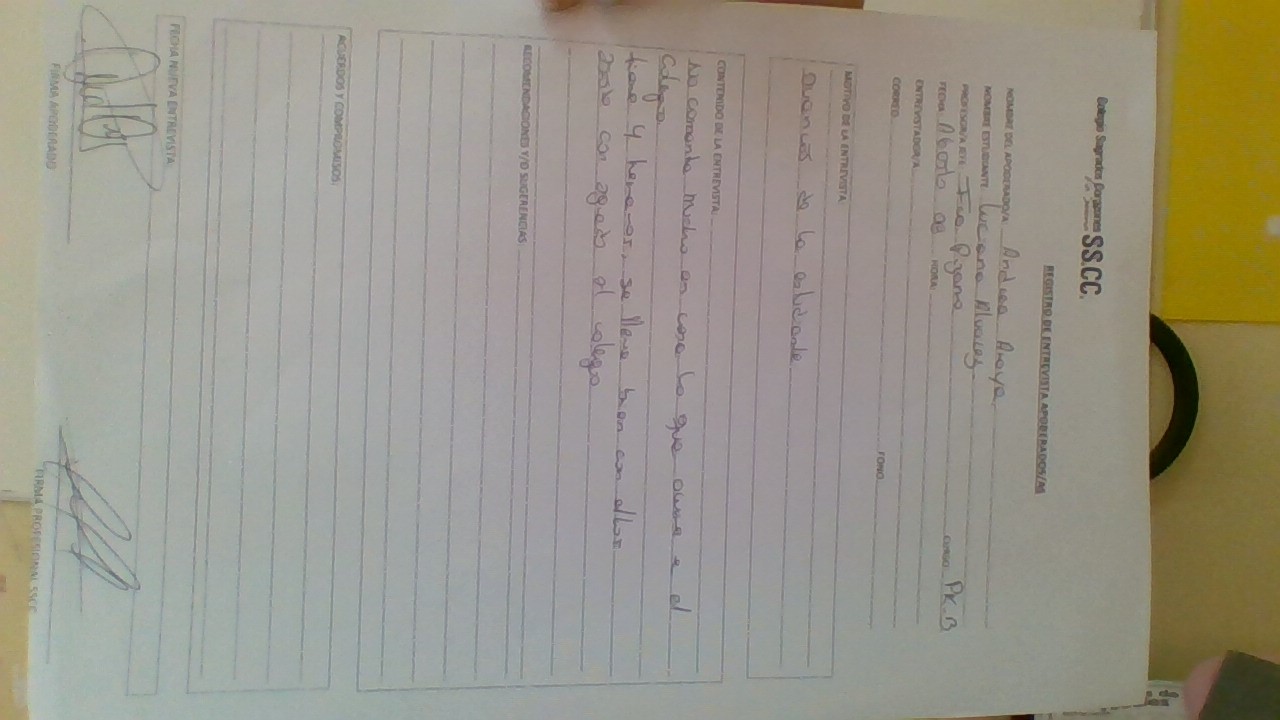 Colegio Sagrados Corazones SS.CC.
REGISTRO DE ENTREVISTA APODERADOS/AS
NOMBRE DEL APODERADO/A Andrea Araya
NOMBRE ESTUDIANTE Luciana Alvarez
PROFESOR/A JEFE Fca Pizarro CURSO PK.B
FECHA Abosto HORA:
ENTREVISTADOR/A
CORREO FONO
MOTIVO DE LA ENTREVISTA
avances de la estudiante
CONTENIDO DE LA ENTREVISTA:
No comenta mucho en casa lo que ocurre en el
Colegio
tiene 4 hermanos, se lleva bien con ellos
asiste con agrado al colegio
RECOMENDACIONES Y/O SUGERENCIAS:
ACUERDOS Y COMPROMISOS:
FECHA NUEVA ENTREVISTA:
FIRMA APODERADO FIRMA PROFESIONAL SSCC